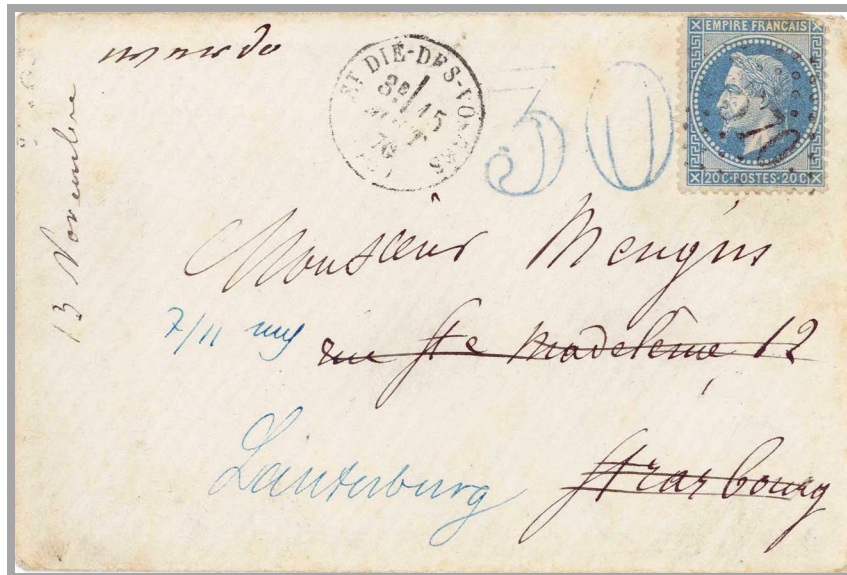 ST DIÉ-DES-VOSGES
3E/15
70
30
EMPIRE FRANCAIS
20C·POSTES·20C
13 Novembre
Monsieur Mengus
7/11
rue Ste Madeleine 12
Lauterburg
Strasbourg